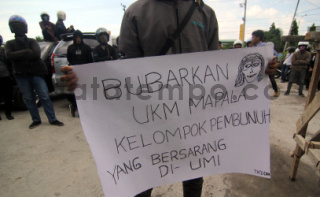 BUBARKAN
UKM MAPALA
KELOMPOK PEMBUNUH
YANG BERSARANG
DI-UMI
datatempo.co